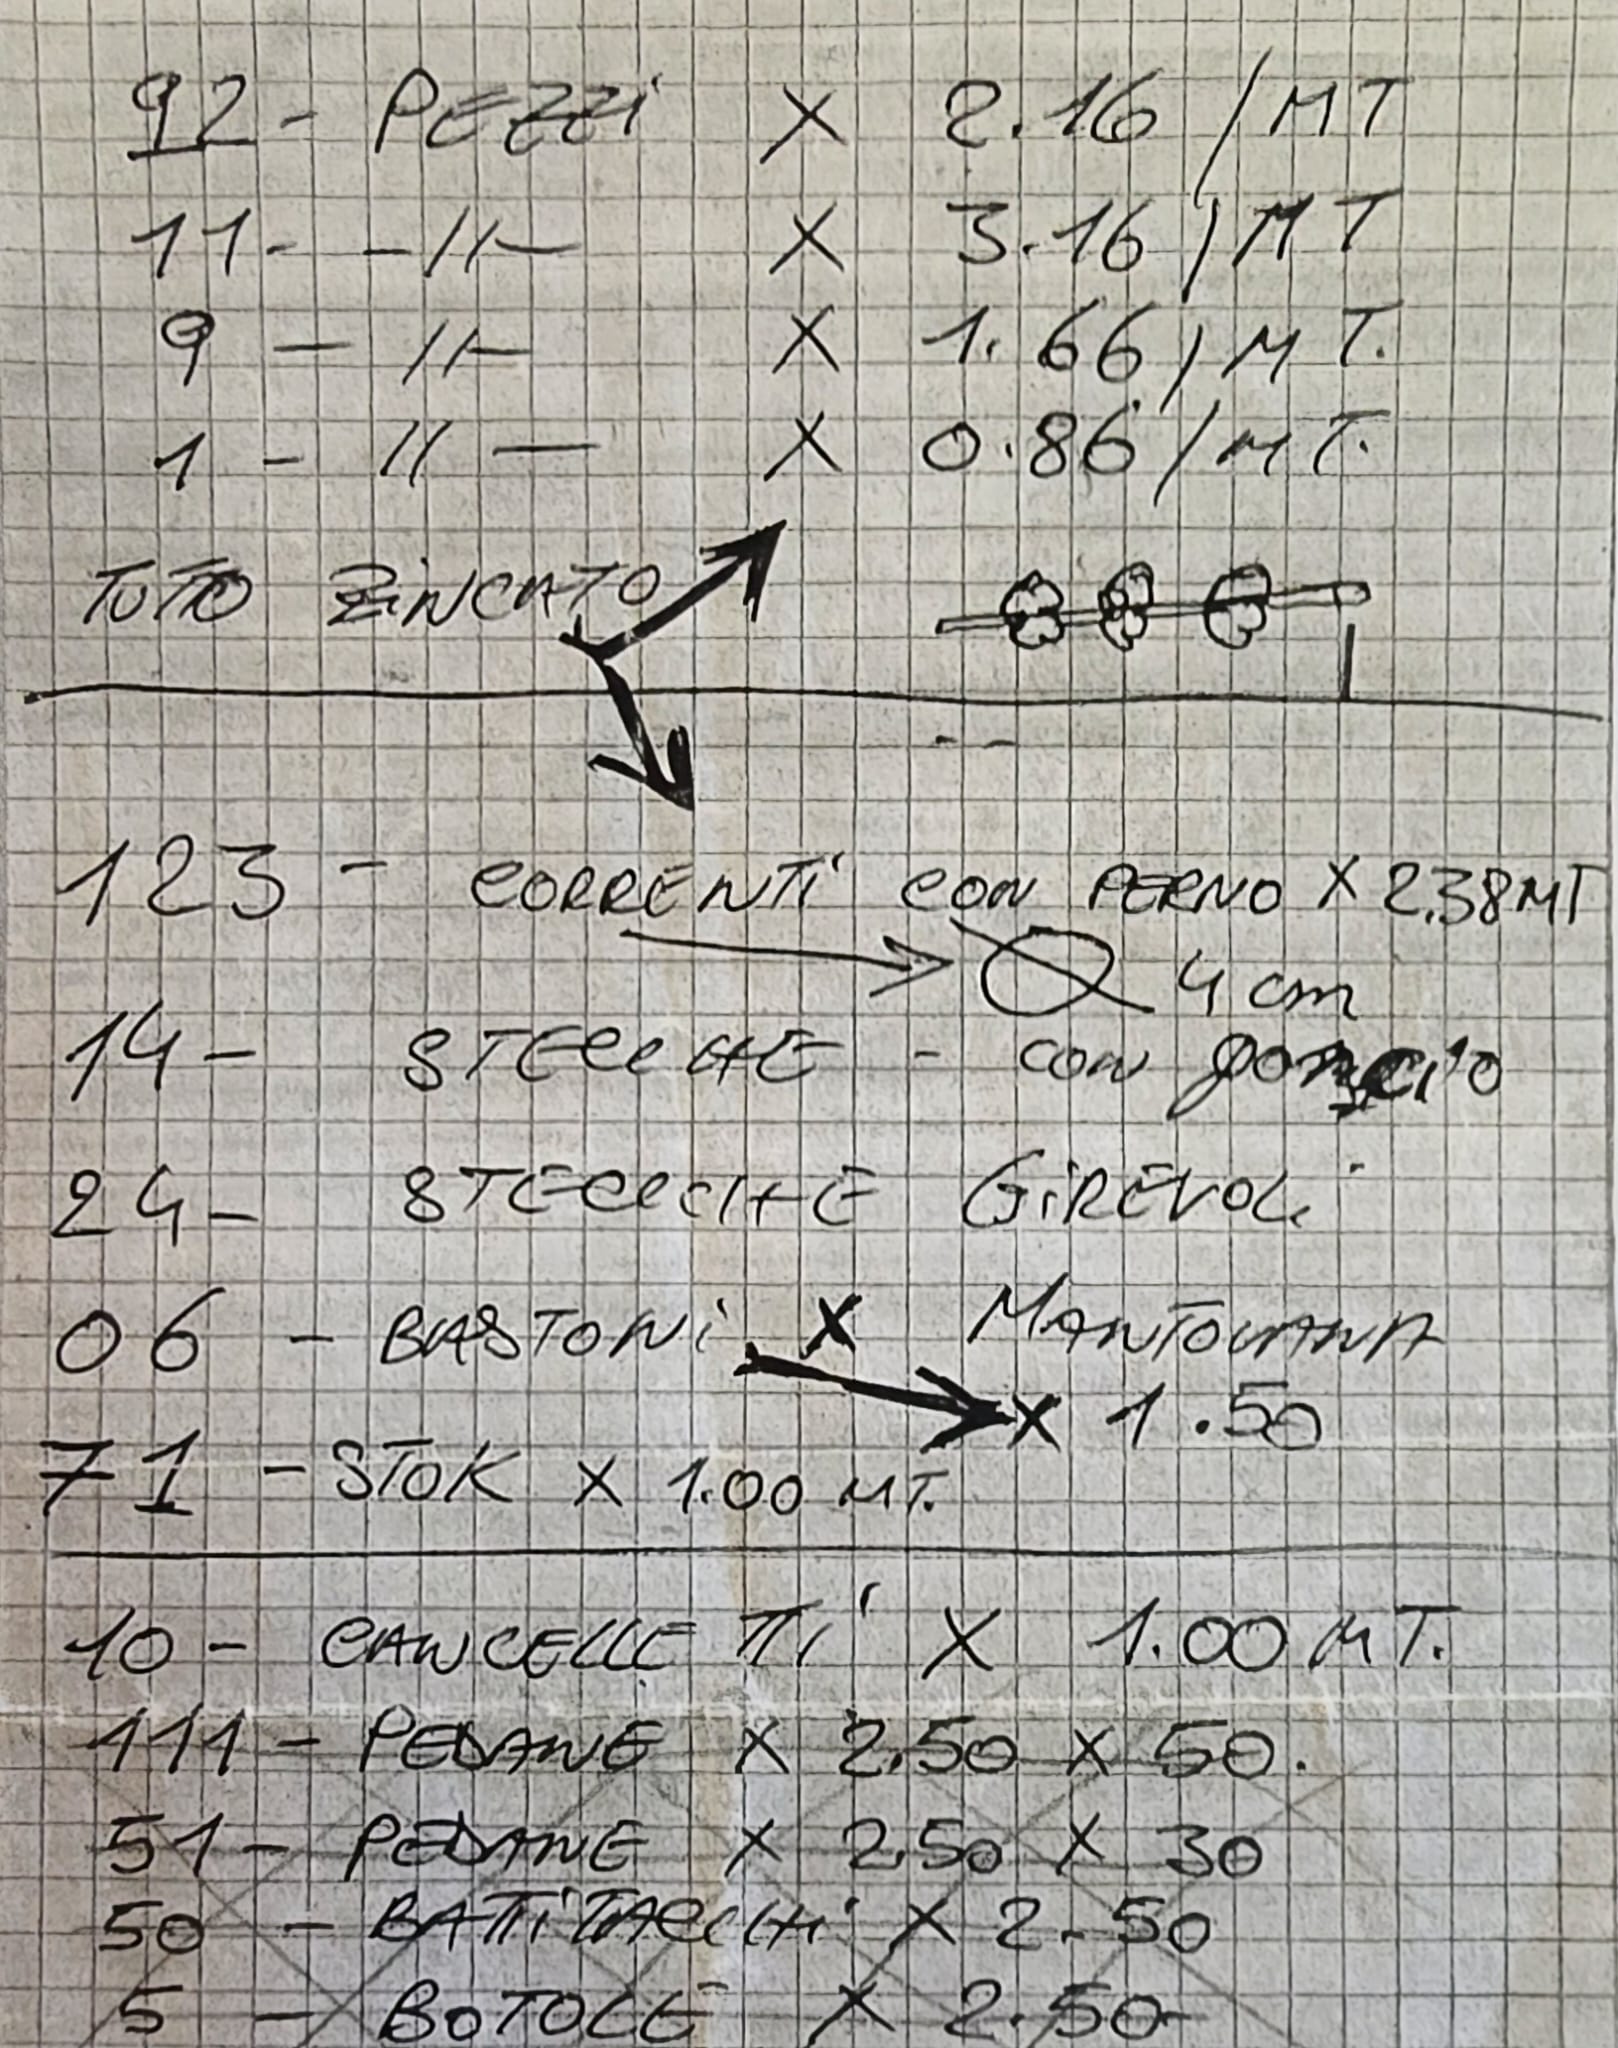 92 - PEZZi X 2.16 / MT
11 - - // - X 3.16 / MT
9 - // - X 1.66 / MT.
1 - // - X 0.86 / MT.
TUTTO ZiNCATO
123 - CORRENTi CON PERNO X 2,38 MT
Ø 4 cm
14 - STECCHE - CON
24 - STECCHE GiREVOLi
06 - BASTONi X MANTOVANA
X 1.50
71 - STOK X 1.00 MT.
10 - CANCELLETTi X 1.00 MT.
111 - PEDANE X 2.50 X 50.
51 - PEDANE X 2,50 X 30
50 - BATTiTACCHi X 2-50
5 - BOTOLE X 2.50